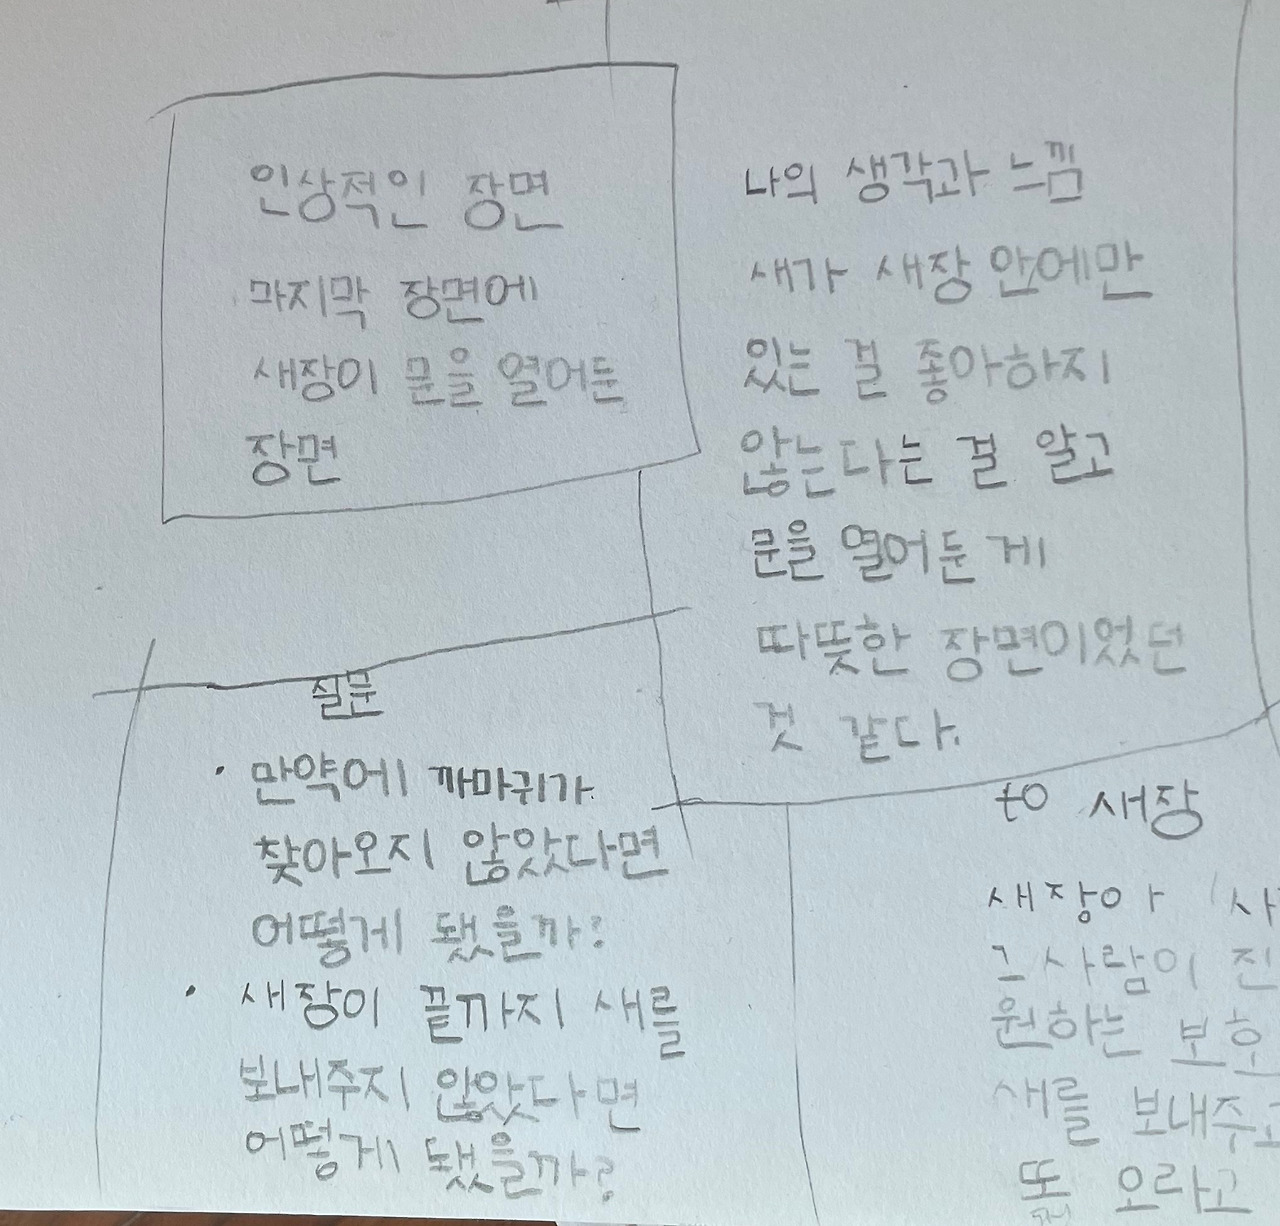 인상적인 장면
마지막 장면에
새장이 문을 열어둔
장면
나의 생각과 느낌
새가 새장 안에만
있는 걸 좋아하지
않는다는 걸 알고
문을 열어둔 게
따뜻한 장면이었던
것 같다.
질문
· 만약에 까마귀가
찾아오지 않았다면
어떻게 됐을까?
· 새장이 끝까지 새를
보내주지 않았다면
어떻게 됐을까?
to 새장
새장아
그 사람이 진
원하는 보호
새를 보내주고
또 오라고